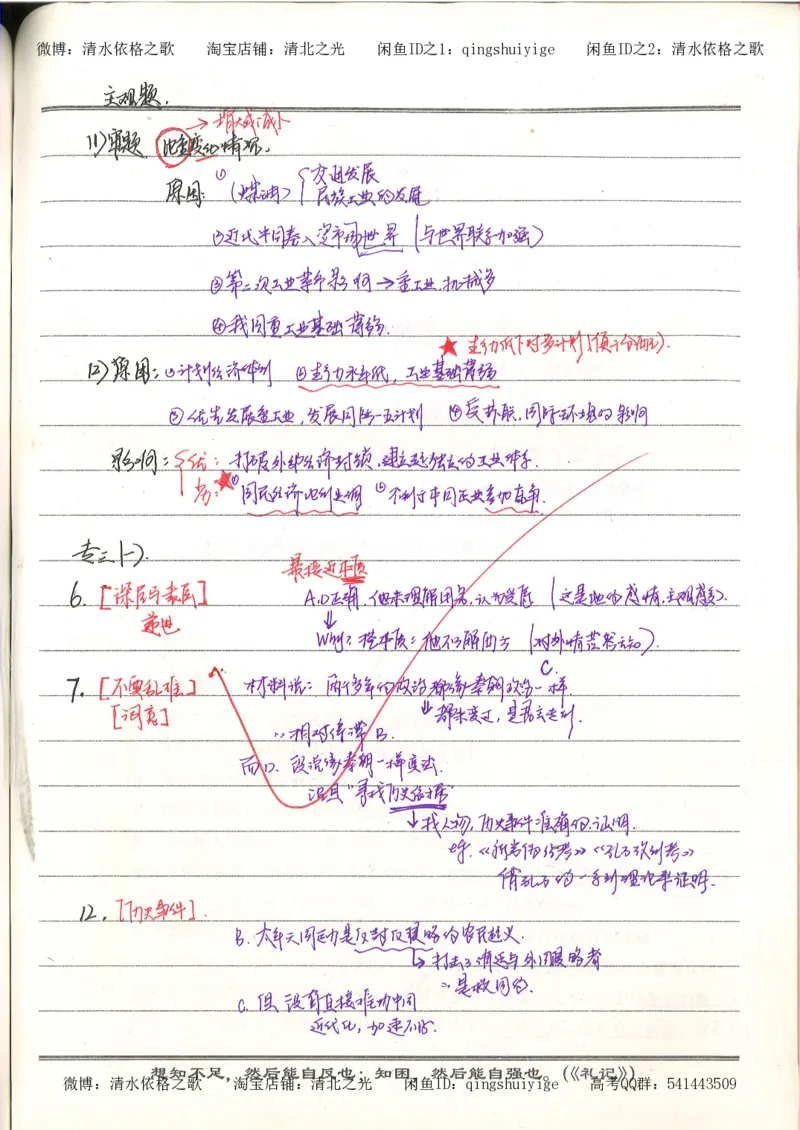 微博：清水依格之歌 淘宝店铺：清北之光 闲鱼ID之1：qingshuiyige 闲鱼ID之2：清水依格之歌
主观题.
→增大或减小
(1)审题 比重变化情况.
原因: ① (煤油) { 交通发展
民族工业的发展
②近代中国卷入资市场世界 (与世界联系加强)
③第二次工业革命影响→重工业,机械多
④我国重工业基础薄弱.
★ 生产力低下时多计划
(2)原因: ①计划经济体制 ②生产力水平低, 工业基础薄弱
③优先发展重工业, 发展国防一五计划 ④受苏联,国际环境的影响
影响: 优: 打破外部经济封锁,建立起独立的工业体系.
劣: ★①国民经济比例失调 ②不利于中国企业参加竞争.
专三(一).
最接近本质
6. [深层与表层] A.D正确, 他未理解困各,认为受辱 (这是他的感情,主观感受).
递进 Why? 挖本质: 他不了解西方 (对外情茫然无知).
C.
7. [不要乱推] 材料说: 两千多年的政治都像秦朝政治一样
[词意] 都未变过, 是否去走到.
∴相对停滞 B.
而D. 没说像秦朝一样变法.
况且“寻找历史依据”
↓找人物,历史事件准确的证明.
eg. 《新学伪经考》《孔子改制考》
借孔子的一系列理论来证明.
12. [历史事件].
B. 太平天国运动是反封反侵略的农民起义.
↳打击了清廷与外国侵略者
∴是救国的.
C. 但没有直接推动中国
近代化, 加速不了.
想知不足，然后能自反也；知困，然后能自强也。(《礼记》)
微博：清水依格之歌 淘宝店铺：清北之光 闲鱼ID：qingshuiyige 高考QQ群：541443509